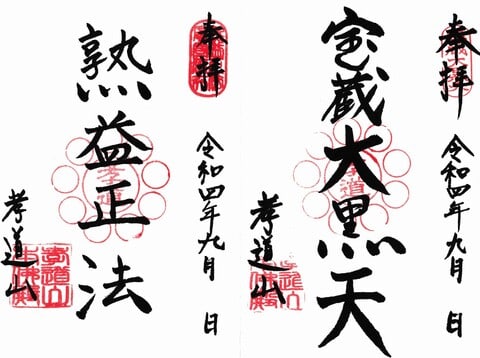 奉拝
令和四年九月 日
宝蔵大黒天
孝道山
奉拝
令和四年九月 日
熟益正法
孝道山
孝道山
本佛殿